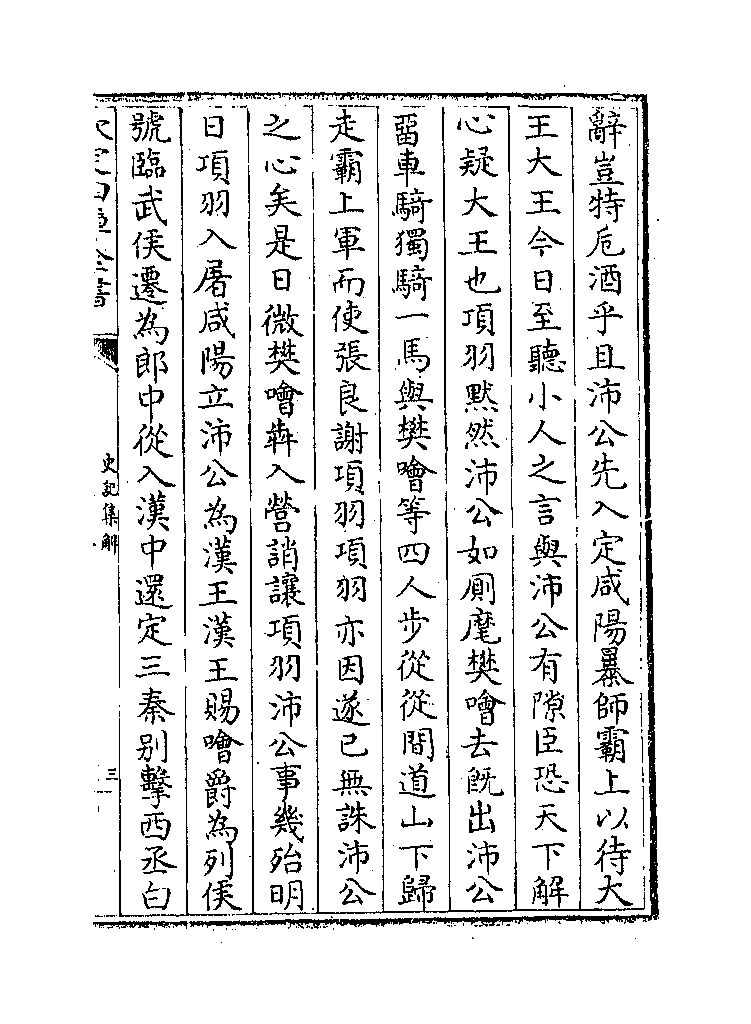 辭豈特卮酒乎且沛公先入定咸陽暴師霸上以待大
王大王今日至聽小人之言與沛公有隙臣恐天下解
心疑大王也項羽黙然沛公如厠麾樊噲去既出沛公
畱車騎獨騎一馬與樊噲等四人步從從間道山下歸
走霸上軍而使張良謝項羽項羽亦因遂已無誅沛公
之心矣是日微樊噲犇入營誚讓項羽沛公事幾殆明
日項羽入屠咸陽立沛公為漢王漢王賜噲爵為列侯
號臨武侯遷為郎中從入漢中還定三秦别擊西丞白
欽定四庫全書
史記集解
三